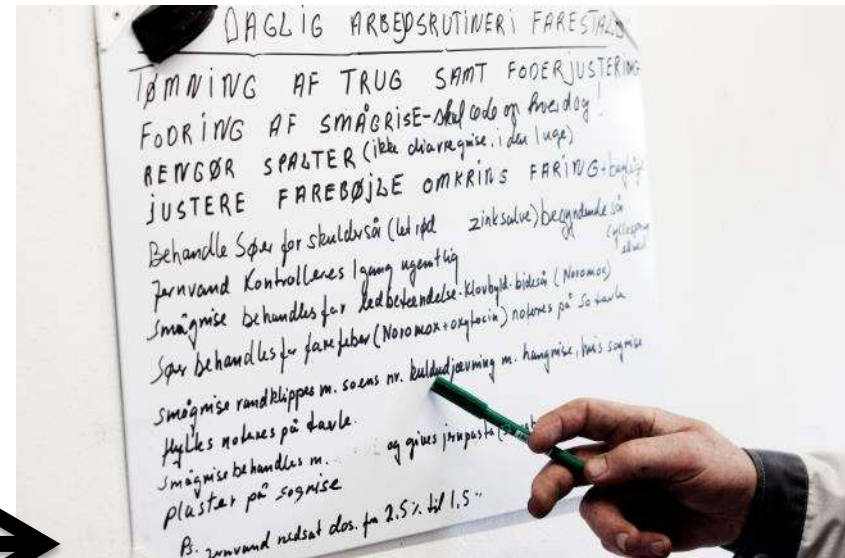 DAGLIG ARBEJDSRUTINER I FARESTALD
TØMNING AF TRUG SAMT FODERJUSTERING
FODRING AF SMÅGRISE - skal æde op hver dag!
RENGØR SPALTER (ikke diarregrise, i den 1 uge)
JUSTERE FAREBØJLE OMKRING FARING +
Behandle Søer for skuldersår (let rød zinksalve) begyndende sår
Jernvand Kontrolleres 1 gang ugentlig
Smågrise behandles for ledbetændelse - klovbyld - bidesår (Noromox)
Søer behandles for farefeber (Noromox + oxytocin) noteres på so tavle
Smågrise randklippes m. soens nr. kuldudjævning m. hangrise, hvis sogrise
flyttes noteres på tavle.
Smågrise behandles m. og gives jernpasta
plaster på sogrise
Ps. jernvand nedsat dos. fra 2.5 % til 1.5 %